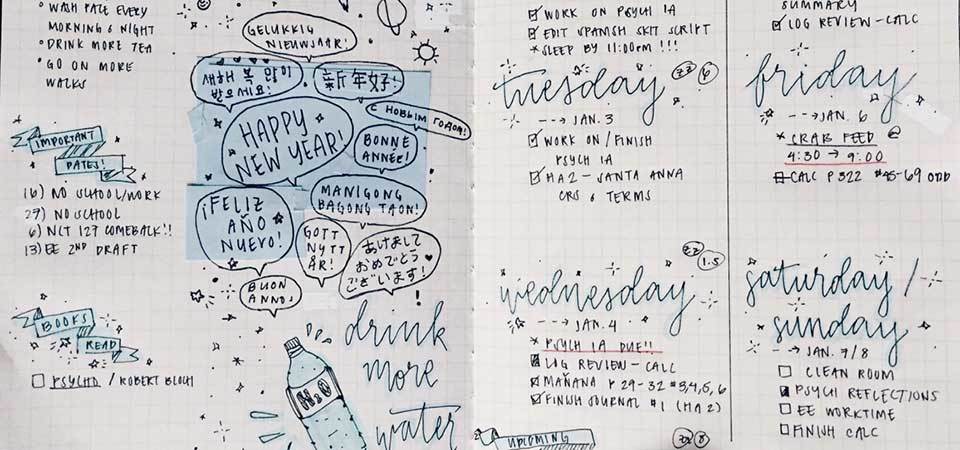 ° WASH FACE EVERY
MORNING & NIGHT
° DRINK MORE TEA
° GO ON MORE
WALKS
IMPORTANT
DATES!
16) NO SCHOOL/WORK
27) NO SCHOOL
6) NCT 127 COMEBACK!!
13) EE 2ND DRAFT
BOOKS
READ
PSYCHO / ROBERT BLOCH
GELUKKIG
NIEUWJAAR!
새해 복 많이
받으세요!
新年好!
С НОВЫМ ГОДОМ!
HAPPY
NEW YEAR!
BONNE
ANNÉE!
MANIGONG
BAGONG TAON!
¡FELIZ
AÑO
NUEVO!
GOTT
NYTT
ÅR!
あけまして
おめでとう
ございます!
BUON
ANNO!
drink
more
water
H2O
WORK ON PSYCH IA
EDIT SPANISH SKIT SCRIPT
*SLEEP BY 11:00PM !!!
tuesday
zz 6
--→ JAN. 3
WORK ON/FINISH
PSYCH IA
HA2 - SANTA ANNA
CRS & TERMS
wednesday
zz 1.5
---→ JAN. 4
* PSYCH IA DUE!!
LOG REVIEW - CALC
MAÑANA P 29-32 #3,4,5,6
FINISH JOURNAL #1 (HA2)
UPCOMING
zz 8
SUMMARY
LOG REVIEW - CALC
friday
--→ JAN. 6
* CRAB FEED @
4:30 → 9:00
CALC P 322 #45-69 ODD
saturday /
sunday
--→ JAN. 7/8
CLEAN ROOM
PSYCH REFLECTIONS
EE WORKTIME
FINISH CALC